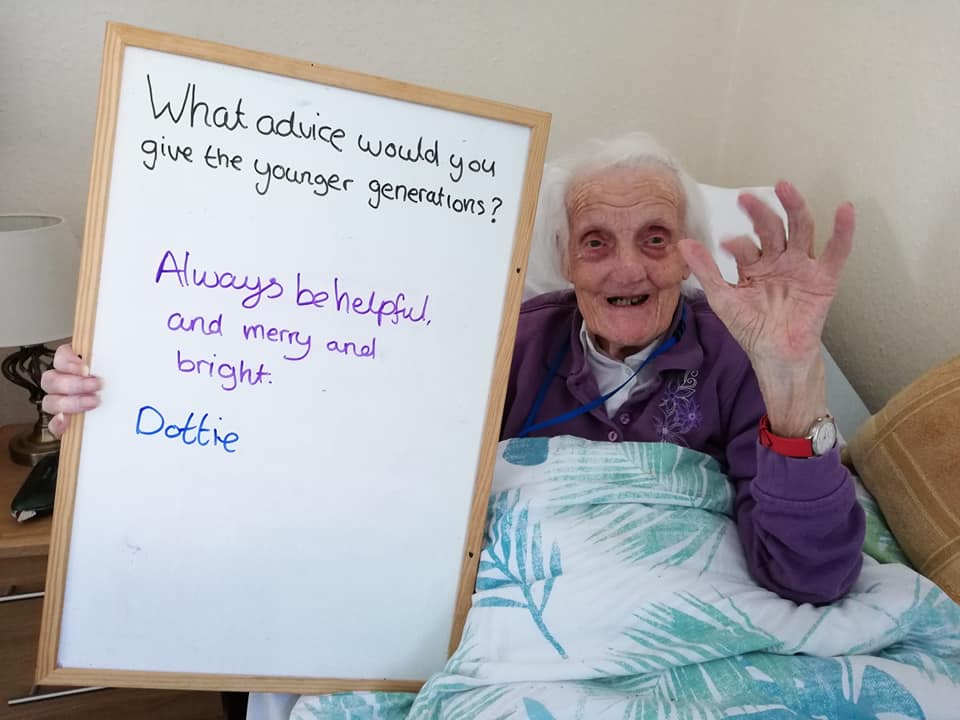 What advice would you
give the younger generations?
Always be helpful,
and merry and
bright.
Dottie